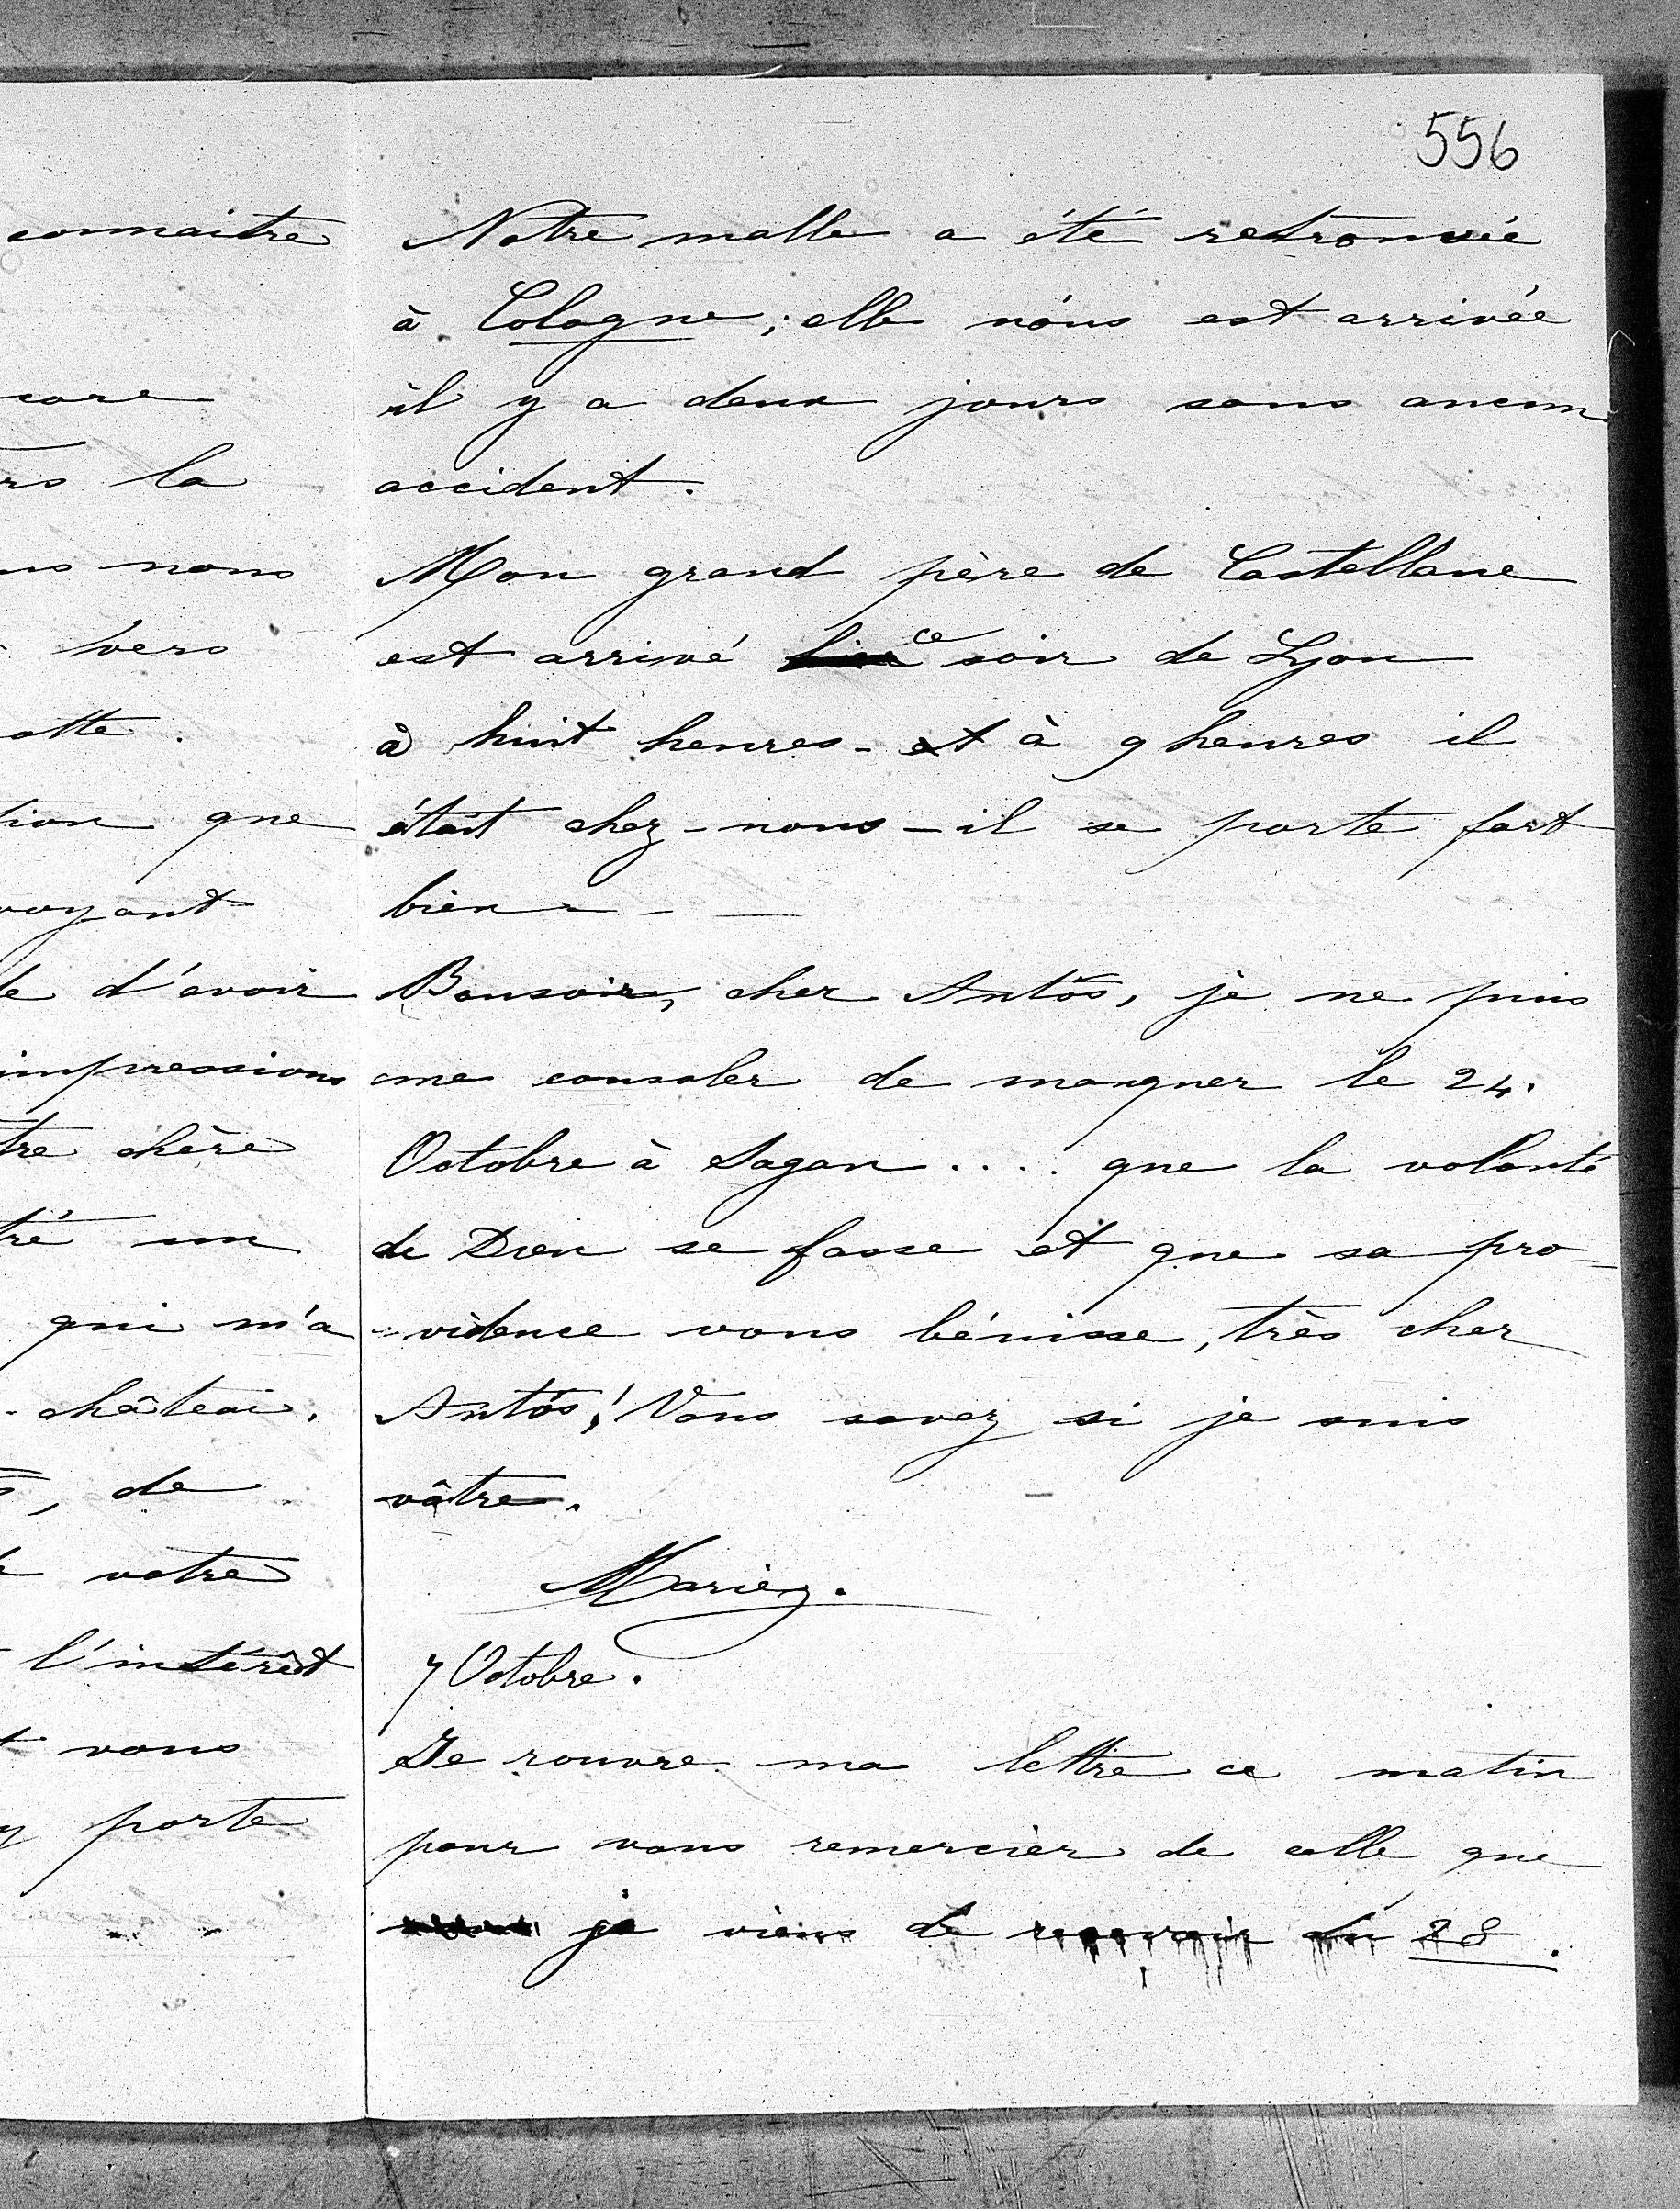 556
connaitre
la
nous
vers
que
d'avoir
impressions
chère
un
qui m'a
château.
, de
votre
l'intérêt
vous
porte
Notre malle a été retrouvée
à Cologne ; elle nous est arrivée
il y a deux jours sans aucun
accident.
Mon grand père de Castellane
est arrivé hier ce soir de Lyon
à huit heures - et à 9 heures il
était chez-nous - il se porte fort
bien - —
Bonsoir, cher Antoś, je ne puis
me consoler de manquer le 24.
Octobre à Sagan .... que la volonté
de Dieu se fasse et que sa pro=
=vidence vous bénisse, très cher
Antoś ! Vous savez si je suis
vôtre. —
Marie.
7 Octobre.
Je rouvre ma lettre ce matin
pour vous remercier de celle que
je viens de recevoir du 28.